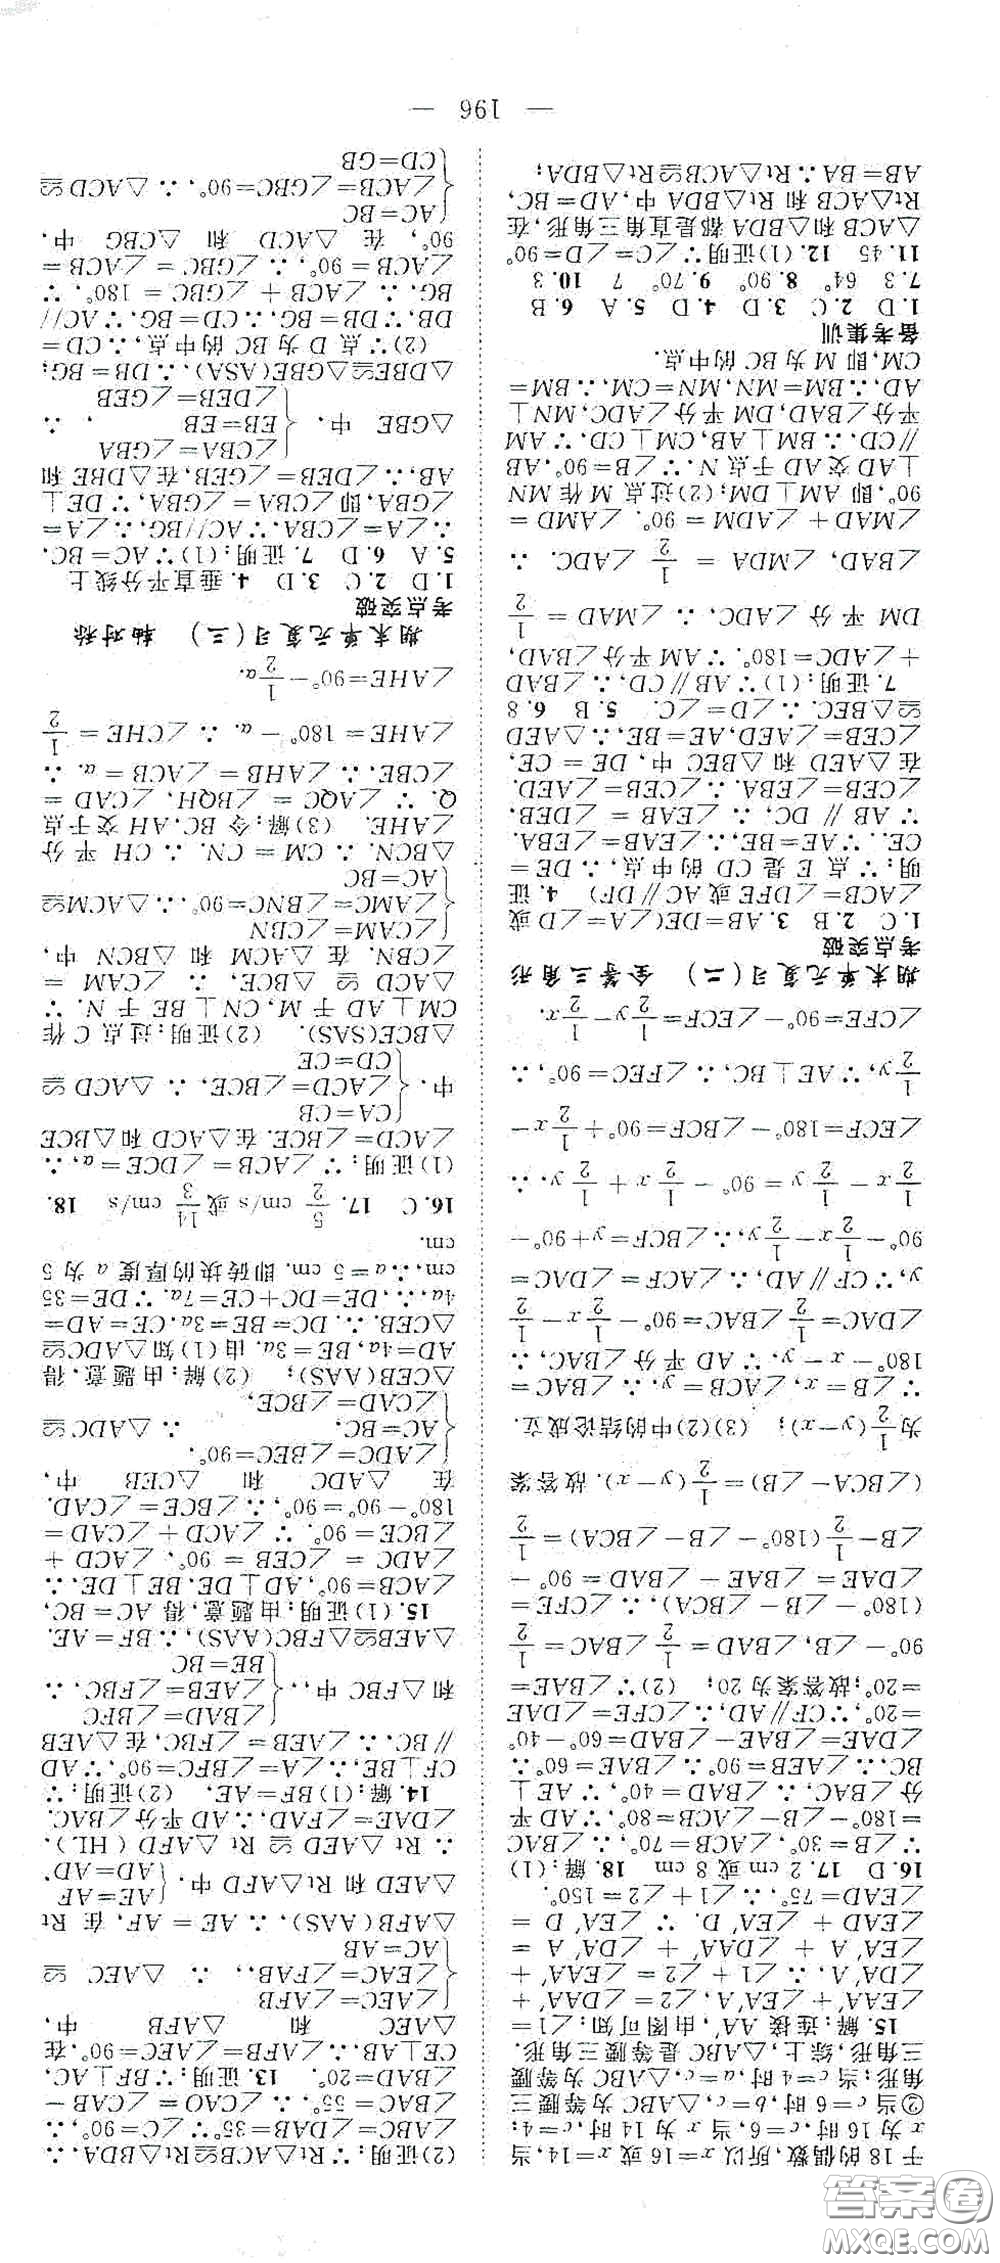 于 18 的偶数,所以 x=16 或 x=14,当
x 为 16 时,c=6,当 x 为 14 时,c=4;
②当 c=6 时,b=c,△ABC 为等腰三
角形;当 c=4 时,a=c,△ABC 为等腰
三角形,综上,△ABC 是等腰三角形.
15. 解:连接 AA′,由图可知:∠1=
∠EAA′+∠EA′A,∠2=∠DAA′+
∠DA′A,∴∠1+∠2=∠EAA′+
∠EA′A+∠DAA′+∠DA′A=
∠EAD+∠EA′D. ∵∠EA′D=
∠EAD=75°,∴∠1+∠2=150°.
16. D 17. 2 cm 或 8 cm 18. 解:(1)
∵∠B=30°,∠ACB=70°,∴∠BAC
=180°-∠B-∠ACB=80°,∵AD 平
分∠BAC,∴∠BAD=40°,∵AE⊥
BC,∴∠AEB=90°,∴∠BAE=60°,∴
∠DAE=∠BAE-∠BAD=60°-40°
=20°,∵CF∥AD,∴∠CFE=∠DAE
=20°;故答案为 20; (2)∵∠BAE=
90°-∠B,∠BAD=1/2∠BAC=1/2
(180°-∠B-∠BCA),∴∠CFE=
∠DAE=∠BAE-∠BAD=90°-
∠B-1/2(180°-∠B-∠BCA)=1/2
(∠BCA-∠B)=1/2(y-x). 故答案
为1/2(y-x); (3)(2)中的结论成立.
∵∠B=x,∠ACB=y,∴∠BAC=
180°-x-y,∵AD 平分∠BAC,∴
∠DAC=1/2∠BAC=90°-1/2x-1/2
y,∵CF∥AD,∴∠ACF=∠DAC=
90°-1/2x-1/2y,∴∠BCF=y+90°-
1/2x-1/2y=90°-1/2x+1/2y,∴
∠ECF=180°-∠BCF=90°+1/2x-
1/2y,∵AE⊥BC,∴∠FEC=90°,∴
∠CFE=90°-∠ECF=1/2y-1/2x.
期末单元复习(二) 全等三角形
考点突破
1. C 2. B 3. AB=DE(∠A=∠D 或
∠ACB=∠DFE 或 AC∥DF) 4. 证
明:∵点 E 是 CD 的中点,∴DE=
CE. ∵AE=BE,∴∠EAB=∠EBA.
∵AB∥DC,∴∠EAB=∠DEB,
∠CEB=∠EBA.∴∠CEB=∠AED.
在△AED 和△BEC 中,DE=CE,
∠CEB=∠AED,AE=BE,∴△AED
≌△BEC.∴∠D=∠C. 5. B 6. 8
7. 证明:(1)∵AB∥CD,∴∠BAD
+∠ADC=180°.∵AM 平分∠BAD,
DM 平分∠ADC,∴∠MAD=1/2
∠BAD,∠MDA=1/2∠ADC. ∴
∠MAD+∠ADM=90°. ∠AMD=
90°,即 AM⊥DM;(2)过点 M 作 MN
⊥AD 交 AD 于点 N.∵∠B=90°,AB
∥CD.∴BM⊥AB,CM⊥CD.∵AM
平分∠BAD,DM 平分∠ADC,MN⊥
AD,∴BM=MN,MN=CM,∴BM=
CM,即 M 为 BC 的中点.
备考集训
1. D 2. C 3. D 4. D 5. A 6. B
7. 3 64° 8. 90° 9. 70° 7 10. 3
11. 45 12. (1)证明∵∠C=∠D=90°
△ACB 和△BDA 都是直角三角形,在
Rt△ACB 和 Rt△BDA 中,AD=BC,
AB=BA∴Rt△ACB≌Rt△BDA;
(2)证明:∵Rt△ACB≌Rt△BDA,∴
∠ABC=∠DAB=35°∵∠C=90°,∴
∠BAC=55°,∴∠CAO=∠CAB-
∠BAD=20°. 13. 证明:∵BF⊥AC,
CE⊥AB.∴∠AFB=∠AEC=90°.在
△AEC 和 △AFB 中,
∠AEC=∠AFB
∠EAC=∠FAB,∴△AEC≌
AC=AB
△AFB(AAS),∴AE=AF,在 Rt
△AED 和 Rt△AFD 中, AE=AF
AD=AD,
∴ Rt△AED≌Rt△AFD(HL),
∠DAE=∠FAD,∴AD 平分∠BAC.
14. 解:(1)BF=AE. (2)证明:∵
CF⊥BE,∴∠A=∠BFC=90°,∵AD
∥BC,∴∠AEB=∠FBC,在△AEB
和△FBC 中,
∠BAD=∠BFC
∠AEB=∠FBC,∴
BE=BC
△AEB≌△FBC(AAS),∴BF=AE.
15. (1)证明:由题意,得 AC=BC,
∠ACB=90°,AD⊥DE,BE⊥DE,∴
∠ADC=∠CEB=90°,∠ACD+
∠BCE=90°. ∵∠ACD+∠CAD=
180°-90°=90°,∴∠BCE=∠CAD.
在 △ADC 和 △CEB 中,
∠ADC=∠BEC=90°,
AC=BC, ∴△ADC≌
∠CAD=∠BCE,
△CEB(AAS); (2)解:由题意,得
AD=4a,BE=3a.由(1)知△ADC≌
△CEB.∴DC=BE=3a.CE=AD=
4a,∴DE=DC+CE=7a.∵DE=35
cm,∴a=5 cm.即砖块的厚度 a 为 5
cm.
16. C 17. 5/2 cm/s 或 14/3 cm/s 18.
(1)证明:∵∠ACB=∠DCE=α,∴
∠ACD=∠BCE.在△ACD 和△BCE
中,
CA=CB
∠ACD=∠BCE,∴△ACD≌
CD=CE
△BCE(SAS). (2)证明:过点 C 作
CM⊥AD 于 M,CN⊥BE 于 N. ∵
△ACD≌△BCE,∴∠CAM=
∠CBN.在△ACM 和△BCN 中,
∠CAM=∠CBN
∠AMC=∠BNC=90°,∴△ACM≌
AC=BC
△BCN.∴CM=CN.∴CH 平分
∠AHE. (3)解:令 BC,AH 交于点
Q.∵∠AQC=∠BQH,∠CAD=
∠CBE.∴∠AHB=∠ACB=α.∴
∠AHE=180°-α.∴∠CHE=1/2
∠AHE=90°-1/2α.
期末单元复习(三) 轴对称
考点突破
1. D 2. C 3. D 4. 垂直平分线上
5. A 6. D 7. 证明:(1)∵AC=BC,
∴∠A=∠CBA.∵AC//BG.∴∠A=
∠GBA,即∠CBA=∠GBA,∵DE⊥
AB,∴∠DEB=∠GEB,在△DBE 和
△GBE 中,
∠CBA=∠GBA
EB=EB ,∴
∠DEB=∠GEB
△DBE≌△GBE(ASA).∴DB=BG;
(2)∵点 D 为 BC 的中点,∴CD=
DB,∵DB=BG,∴CD=BG,∵AC//
BG,∴∠ACB+∠GBC=180°,∵
∠ACB=90°,∴∠GBC=∠ACB=
90°,在 △ACD 和 △CBG 中,
AC=BC
∠ACB=∠GBC=90°,∴△ACD≌
CD=GB
— 196 —
答案圈
MXQE.COM